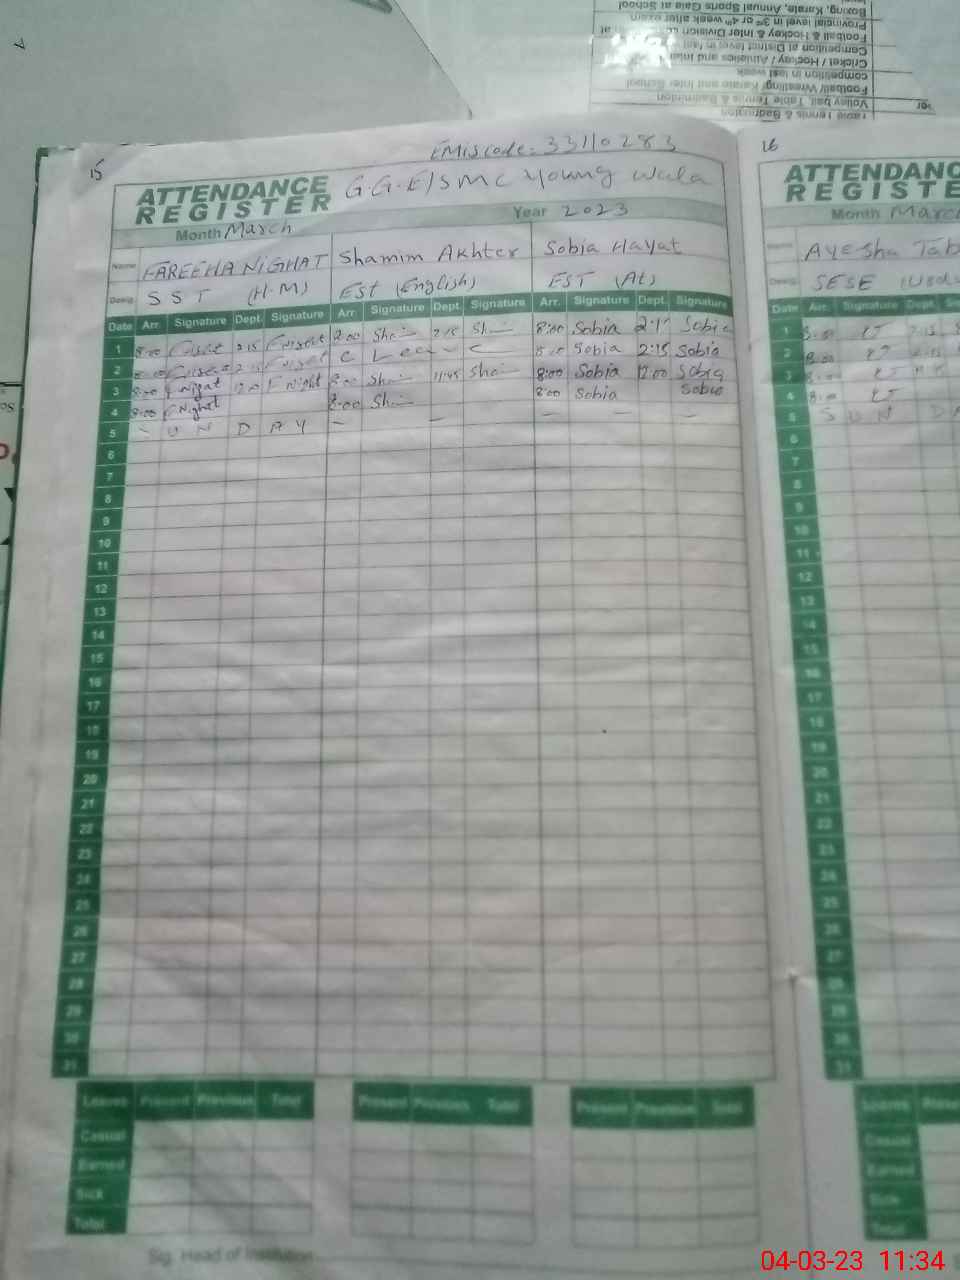 Boxing, Karate, Annual Sports Gala at School
Provincial level in 3rd or 4th week after exam
Football & Hockey & Inter Division at
Competition at District level in last
Cricket / Hockey / Athletics and Inter
competition in last week
Football/ Wrestling/ Karate and Inter School
Volley ball, Table Tennis & Badminton
Table Tennis & Badminton
EMis code: 33110283
15
ATTENDANCE REGISTER
G.G.E/S MC Young wala
Month March Year 2023
Name FAREEHA NIGHAT Shamim Akhter Sobia Hayat
Desig. SST (H.M) EST (English) EST (At)
Date Arr. Signature Dept. Signature Arr. Signature Dept. Signature Arr. Signature Dept. Signature
1 8:00 2:15 8:00 Sha 2:15 Sh 8:00 Sobia 2:1 Sobia
2 C Leave C Sobia 2:15 Sobia
3 8:00 12:00 F Night 8:00 Sha 11:45 Sha 8:00 Sobia 12:00 Sobia
4 8:00 Nighat 8:00 Sha 8:00 Sobia Sobia
5 - U N D A Y - - - -
6
7
8
9
10
11
12
13
14
15
16
17
18
19
20
21
22
23
24
25
26
27
28
29
30
31
Leaves Present Previous Total Present Previous Total Present Previous Total
Casual
Earned
Sick
Total
Sig. Head of Institution
16
ATTENDANCE
REGISTE
Month March
Name Ayesha Tab
Desig. SESE
Date Arr. Signature Dept.
1 8:00 2:15
2 8:00
3 8:00
4 8:00
5 S U N D A
6
7
8
9
10
11
12
13
14
15
16
17
18
19
20
21
22
23
24
25
26
27
28
29
30
31
Leaves
Casual
Earned
Sick
Total
04-03-23 11:34